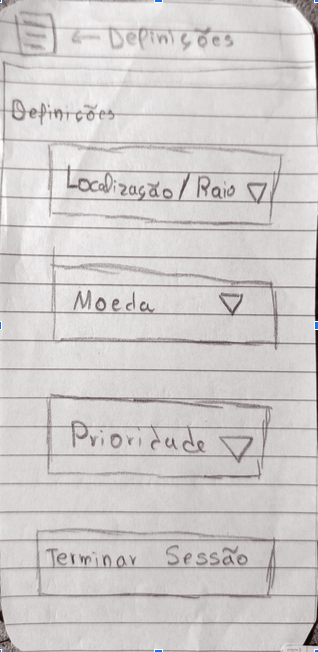 ← Definições
Definições
Localização / Raio ▽
Moeda ▽
Prioridade ▽
Terminar Sessão